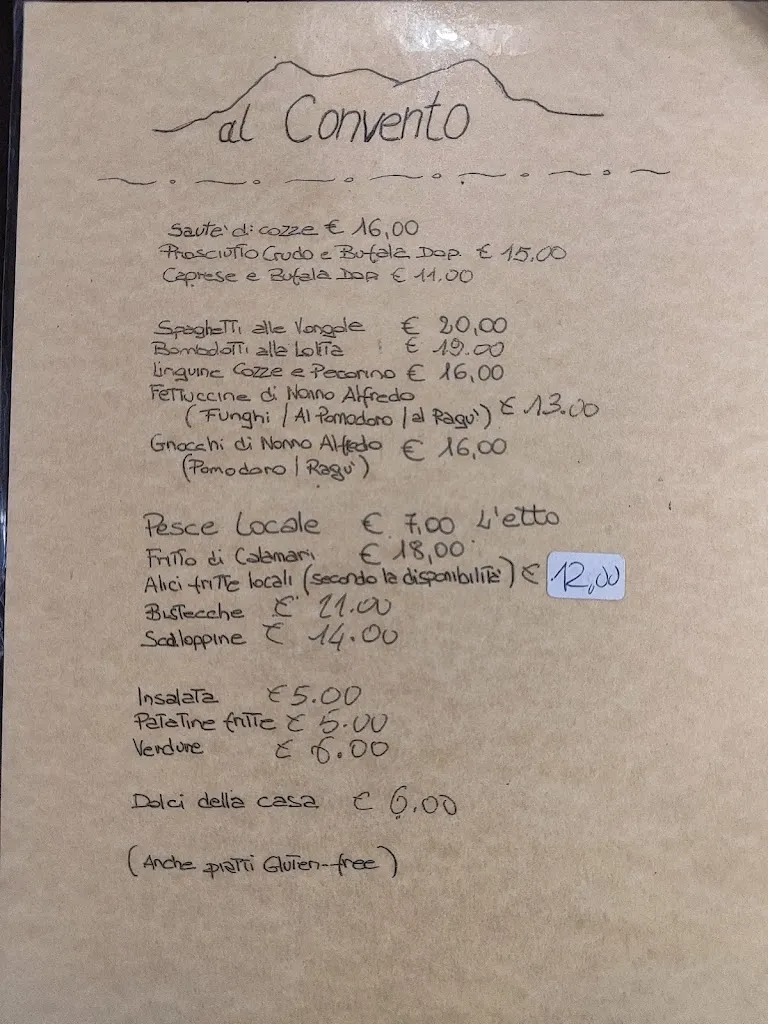 al Convento
Sautè di cozze € 16,00
Prosciutto Crudo e Bufala Dop. € 15,00
Caprese e Bufala Dop € 11.00
Spaghetti alle Vongole € 20,00
Bombolotti alla Lolita € 19.00
Linguine Cozze e Pecorino € 16,00
Fettuccine di Nonno Alfredo
(Funghi / Al Pomodoro / al Ragu') € 13.00
Gnocchi di Nonno Alfredo € 16,00
(Pomodoro / Ragu')
Pesce Locale € 7,00 L'etto
Fritto di Calamari € 18,00
Alici fritte locali (secondo la disponibilità) € 12,00
Bistecche € 21.00
Scaloppine € 14.00
Insalata € 5.00
Patatine fritte € 5.00
Verdure € 6.00
Dolci della casa € 6.00
(Anche piatti Gluten-free)